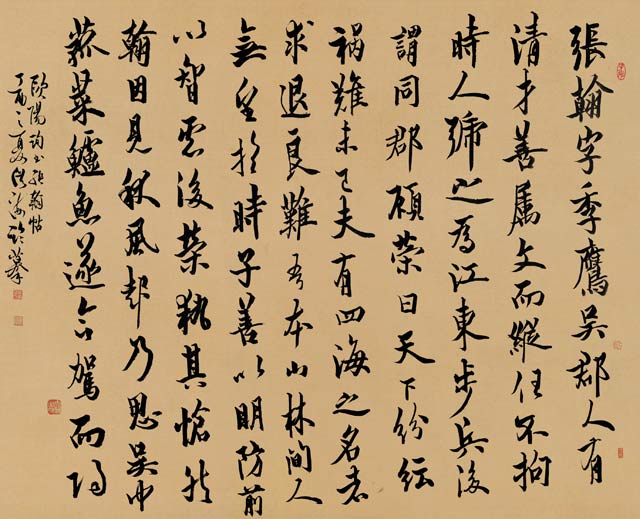 張翰字季鷹吳郡人有
清才善属文而縱任不拘
時人號之為江東步兵後
謂同郡顧榮曰天下紛紜
禍難未已夫有四海之名者
求退良難吾本山林間人
無望於時子善以明防前
以智慮後榮執其愴然
翰因見秋風起乃思吳中
菰菜鱸魚遂命駕而歸
歐陽詢書張翰帖
丁酉之夏海臨摹